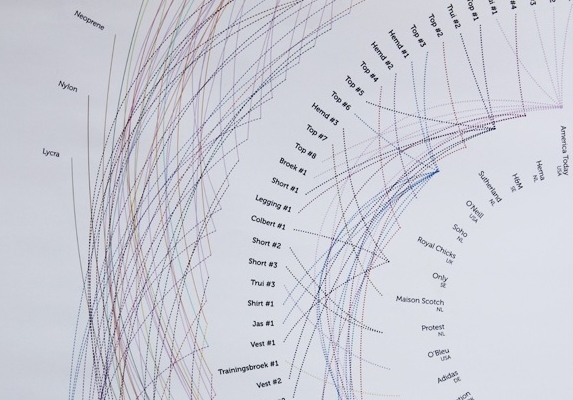 Neoprene
Nylon
Lycra
Trui #2
Top #1
Top #2
Top #3
Hemd #1
Hemd #2
Top #4
Top #5
Top #6
Hemd #3
Top #7
Top #8
Broek #1
Short #1
Legging #1
Colbert #1
Short #2
Short #3
Trui #3
Shirt #1
Jas #1
Vest #1
Trainingsbroek #1
Vest #2
America Today
USA
Hema
NL
H&M
SE
Sutherland
NL
O'Neill
USA
Soho
NL
Royal Chicks
UK
Only
SE
Maison Scotch
NL
Protest
NL
O'Bleu
USA
Adidas
DE